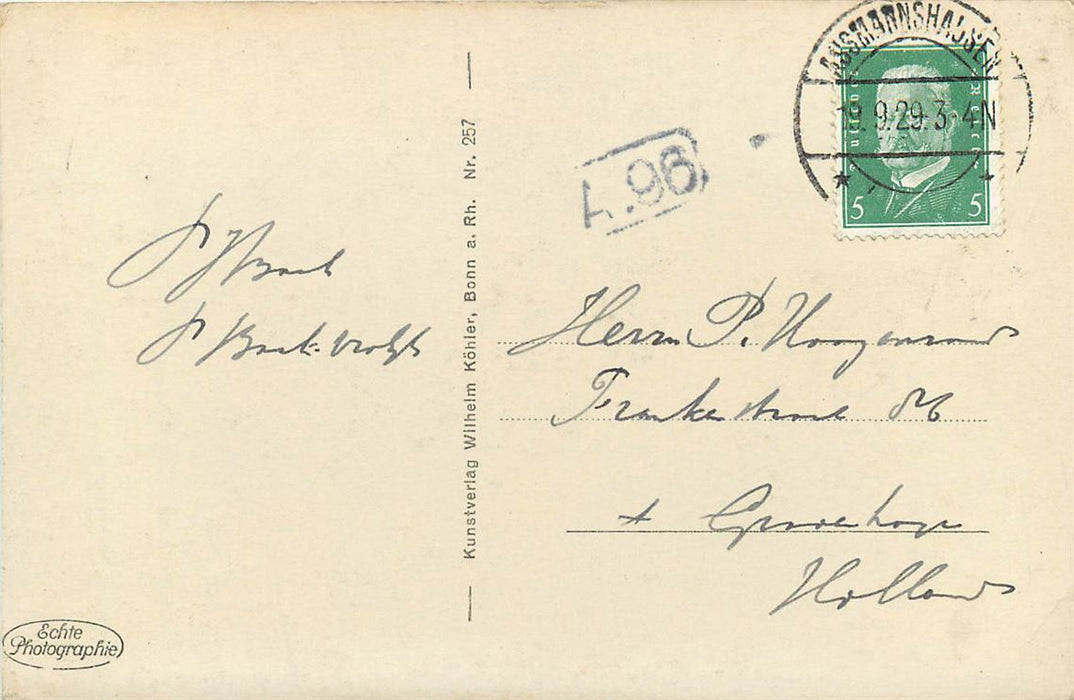 ASSMANNSHAUSEN
9.9.29.3-4N
Deutsches Reich
5 5
A.96
Kunstverlag Wilhelm Köhler, Bonn a. Rh. Nr. 257
Herrn P. Hoogenraad
Frankenstraat 86
s Gravenhage
Holland
Echte
Photographie